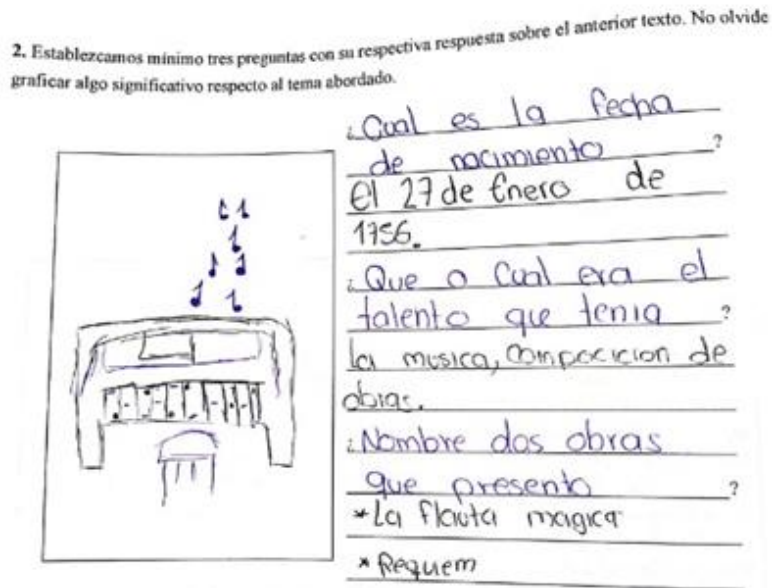 2. Establezcamos mínimo tres preguntas con su respectiva respuesta sobre el anterior texto. No olvide
graficar algo significativo respecto al tema abordado.
¿Cual es la fecha
de nacimiento?
El 27 de Enero de
1756.
¿Que o Cual era el
talento que tenia?
la musica, Composicion de
obras.
¿Nombre dos obras
que presento?
*La flauta magica
*Requem